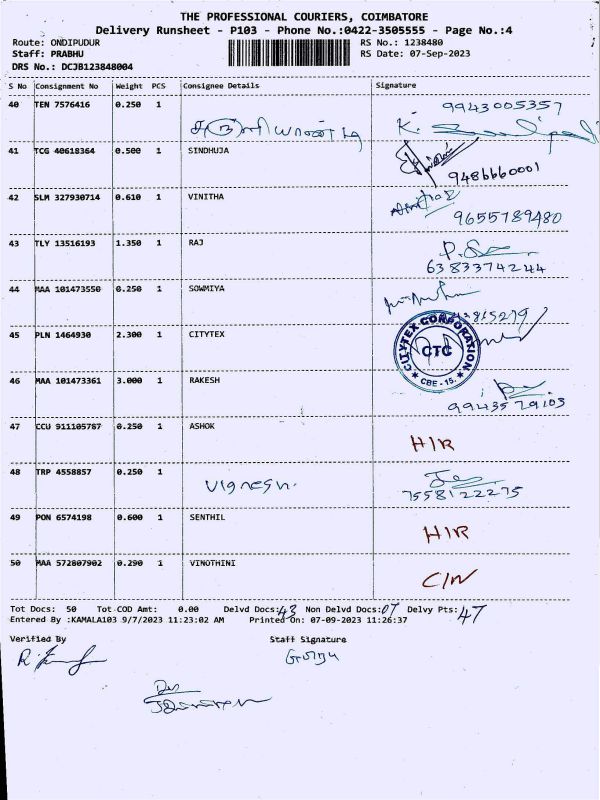 THE PROFESSIONAL COURIERS, COIMBATORE
Delivery Runsheet - P103 - Phone No.:0422-3505555 - Page No.:4
Route: ONDIPUDUR RS No.: 1238480
Staff: PRABHU RS Date: 07-Sep-2023
DRS No.: DCJB123848004
S No Consignment No Weight PCS Consignee Details Signature
40 TEN 7576416 0.250 1 9943005357
K.
41 TCG 40618364 0.500 1 SINDHUJA
9486660001
42 SLM 327930714 0.610 1 VINITHA
9655789480
43 TLY 13516193 1.350 1 RAJ
6383374244
44 MAA 101473550 0.250 1 SOWMIYA
45 PLN 1464930 2.300 1 CITYTEX
CITYTEX CORPORATION
CTC
★ CBE - 15. ★
46 MAA 101473361 3.000 1 RAKESH
9943579103
47 CCU 911105787 0.250 1 ASHOK
HIR
48 TRP 4558857 0.250 1
Vignesh.
7558122275
49 PON 6574198 0.600 1 SENTHIL
HIR
50 MAA 572807902 0.290 1 VINOTHINI
C/N
Tot Docs: 50 Tot COD Amt: 0.00 Delvd Docs: 43 Non Delvd Docs: 07 Delvy Pts: 47
Entered By :KAMALA103 9/7/2023 11:23:02 AM Printed On: 07-09-2023 11:26:37
Verified By Staff Signature